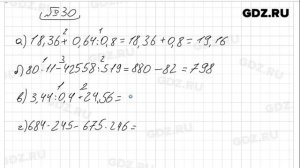 GDZ.RU
№30
а) 18,36 + 0,64 : 0,8 = 18,36 + 0,8 = 19,16
б) 80 · 11 - 42558 : 519 = 880 - 82 = 798
в) 3,44 : 0,4 + 24,56 =
г) 684 · 245 - 675 · 246 =
GDZ.RU